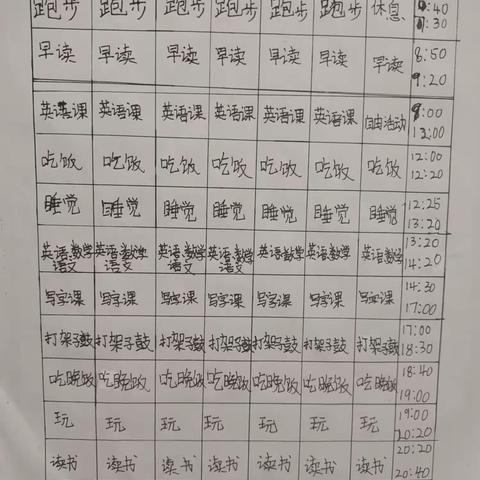 跑步 跑步 跑步 跑步 跑步 跑步 休息 :40
:30
早读 早读 早读 早读 早读 早读 早读 8:50
9:20
英语课 英语课 英语课 英语课 英语课 英语课 自由活动 9:00
12:00
吃饭 吃饭 吃饭 吃饭 吃饭 吃饭 吃饭 12:00
12:20
睡觉 睡觉 睡觉 睡觉 睡觉 睡觉 睡觉 12:25
13:20
英语数学 英语数学 英语数学 英语数学 英语数学 英语数学 英语数学 13:20
语文 语文 语文 语文 14:20
写字课 写字课 写字课 写字课 写字课 写字课 写字课 14:30
17:00
打架子鼓 打架子鼓 打架子鼓 打架子鼓 打架子鼓 打架子鼓 打架子鼓 17:00
18:30
吃晚饭 吃晚饭 吃晚饭 吃晚饭 吃晚饭 吃晚饭 吃晚饭 18:40
19:00
玩 玩 玩 玩 玩 玩 玩 19:00
20:20
读书 读书 读书 读书 读书 读书 读书 20:20
20:40